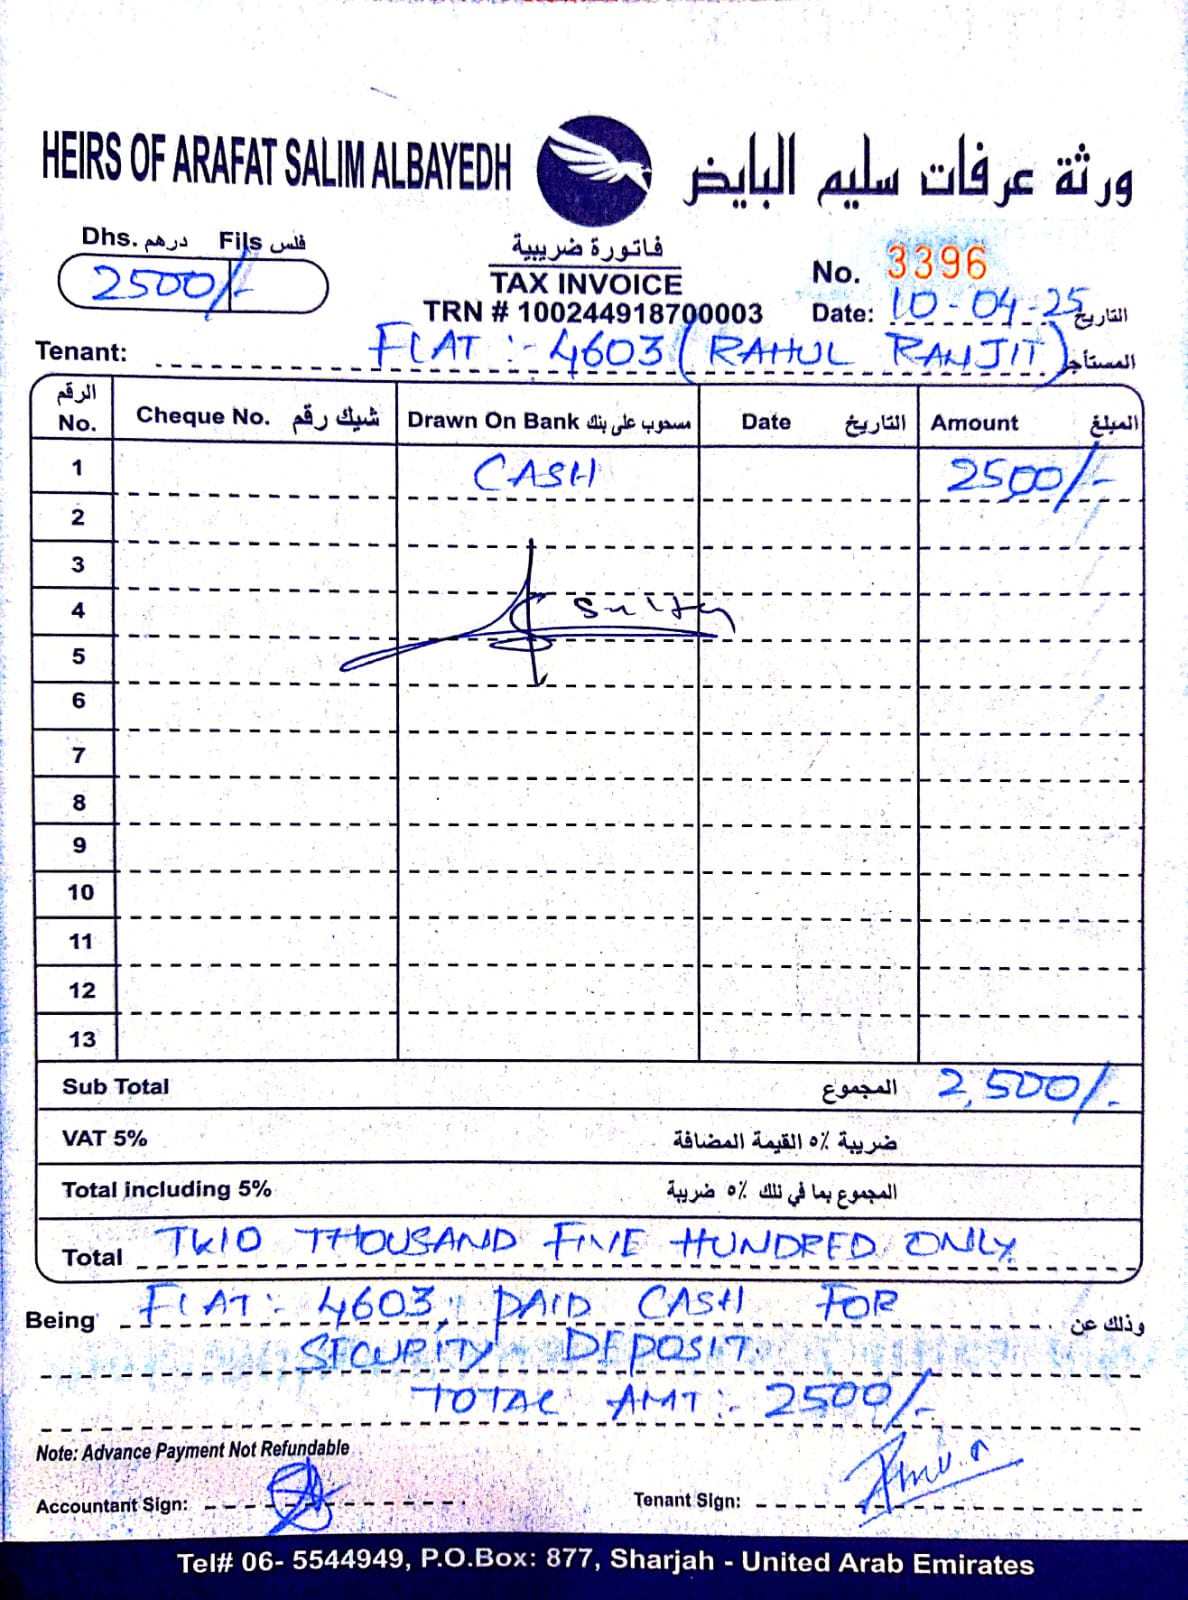 HEIRS OF ARAFAT SALIM ALBAYEDH ورثة عرفات سليم البايض
Dhs. درهم Fils فلس
2500/-
فاتورة ضريبية
TAX INVOICE
TRN # 100244918700003
No. 3396
Date: 10-04-25 التاريخ
Tenant: FLAT :- 4603 (RAHUL RANJIT) المستأجر
الرقم No. Cheque No. شيك رقم Drawn On Bank مسحوب على بنك Date التاريخ Amount المبلغ
1 CASH 2500/-
2
3
4
5
6
7
8
9
10
11
12
13
Sub Total المجموع 2,500/-
VAT 5% ضريبة ٥٪ القيمة المضافة
Total including 5% المجموع بما في ذلك ٥٪ ضريبة
Total TWO THOUSAND FIVE HUNDRED ONLY
Being FLAT:- 4603, PAID CASH FOR وذلك عن
SECURITY DEPOSIT.
TOTAL AMT:- 2500/-
Note: Advance Payment Not Refundable
Accountant Sign: Tenant Sign:
Tel# 06- 5544949, P.O.Box: 877, Sharjah - United Arab Emirates